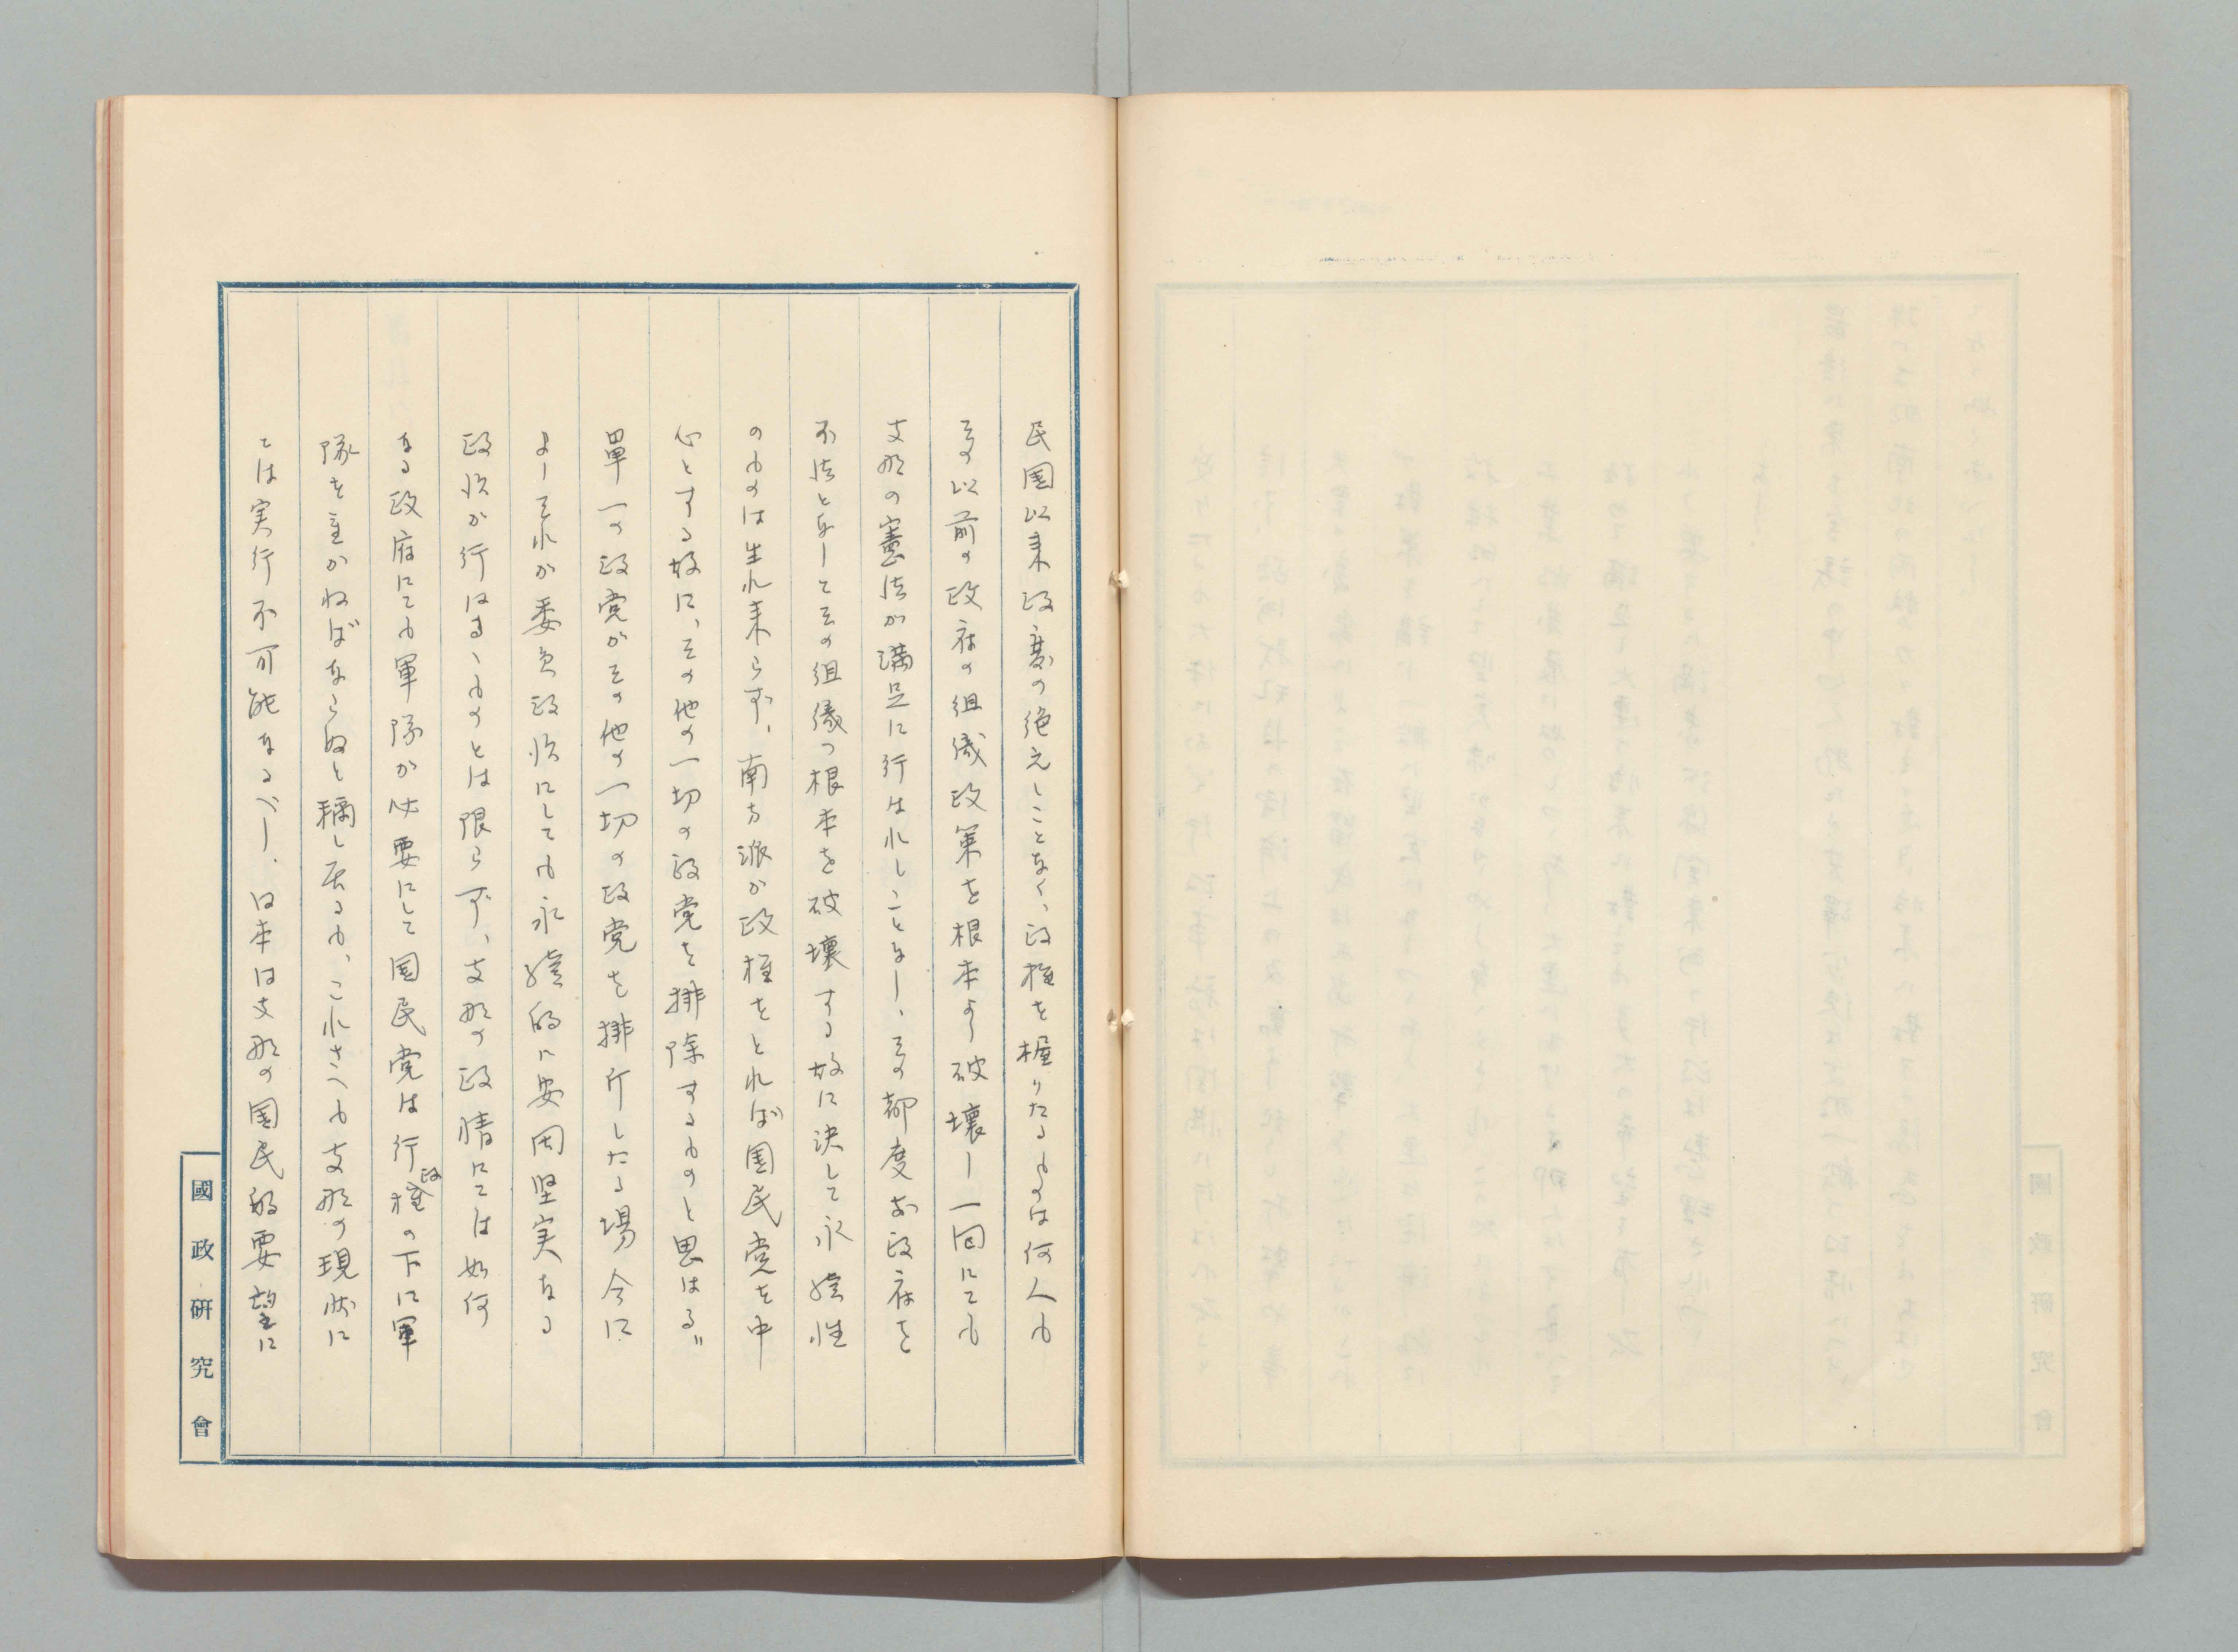 民国以来政変の絶えしことなく、政権を握りたるものは何人も
その以前の政府の組織政策を根本より破壊し一回にても
支那の憲法が満足に行はれしことなし、その都度前政府を
不法となしてその組織の根本を破壊する故に決して永続性
のものは生れ来らず、南方派が政権をとれば国民党を中
心とする故に、その他の一切の政党を排除するものと思はる〃
単一の政党がその他の一切の政党を排斥したる場合に
よしそれが委員政治にしても永続的に安固堅実なる
政治が行はるゝものとは限らず、支那の政情にては如何
なる政府にても軍隊が必要にして国民党は行政権の下に軍
隊を置かねばならぬと称し居るも、これさへも支那の現状に
ては実行不可能なるべし、日本は支那の国民的要望に
國政研究會